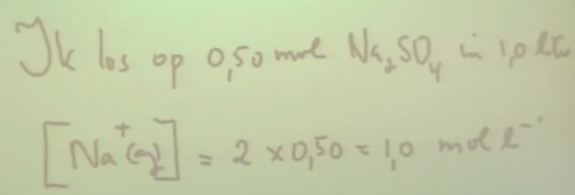 Ik los op 0,50 mol Na₂SO₄ in 1,0 liter
[Na⁺(aq)] = 2 × 0,50 = 1,0 mol l⁻¹